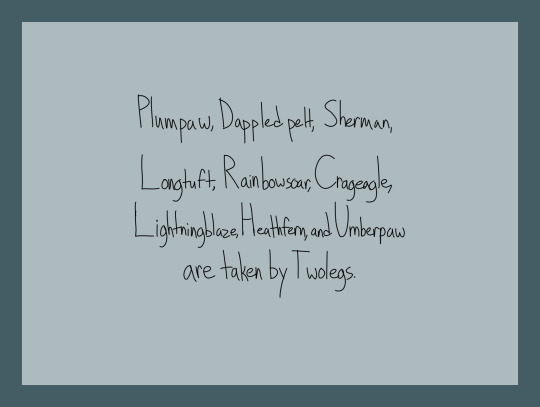 Plumpaw, Dappledpelt, Sherman,
Longtuft, Rainbowsoar, Crageagle,
Lightningblaze, Heathfern, and Umberpaw
are taken by Twolegs.